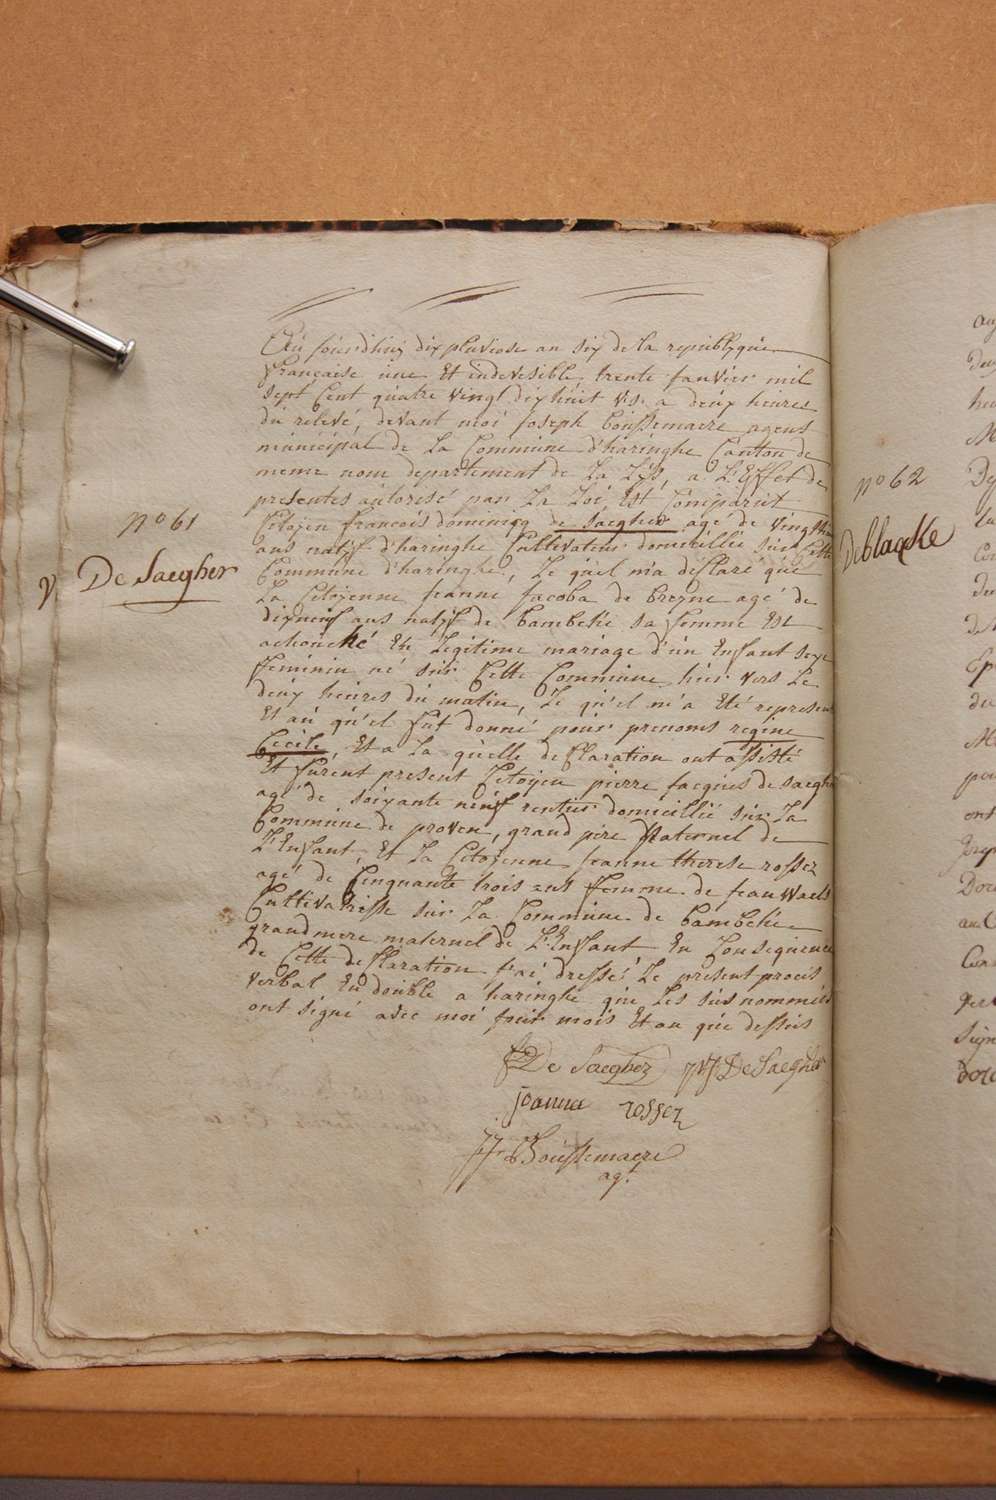 Au jourdhuij dix pluviose an six de la republique
francaise une Et indevesible, trente janvier mil
sept Cent quatre vingt dix huit v.s. a deux heures
du relevé, devant moi joseph Boussemaere agent
municipal de La Commune d'haringhe Canton de
meme nom departement de La Lijs, a L'Effet de
presentes autorisé par La Loi, Est Comparut
Citoyen francois dominicq de Saegher agé de vingt
ans natif d'haringhe Cultivateur domicillié sur Cette
Commune d'haringhe, Le quel m'a desflaré que
La Citoyenne jeanne jacoba de breyne agé de
dixneuf ans natif de bambeke sa femme Est
achouché En Legitime mariage d'un Enfant sexe
feminin né sur Cette Commune hier vers Le
deux heures du matin, Le qu'el m'a Eté represen
Et au qu'el fut donné pour prenoms regine
Cecile, Et a La qu'elle desflaration ont assisté
Et furent present Citoyen pierre jacques de saegher
agé de soixante neuf rentier domicillié sur La
Commune de proven, grand pere paternel de
L'Enfant, Et La Citoyenne jeanne therese rossez
agé de Cinquante trois ans femme de jean waels
Cultivatrisse sur La Commune de bambeke
grandmere maternel de L'Enfant En Consequence
de Cette desflaration j'ai dressé Le present proces
verbal En double a haringhe que Les sus nommés
ont signé avec moi jour mois Et an que dessus
n° 61
De Saegher
n° 62
Deblaecke
De Saegher PJ De Saegher
joanna rossez
JJ Boussemaere
agt